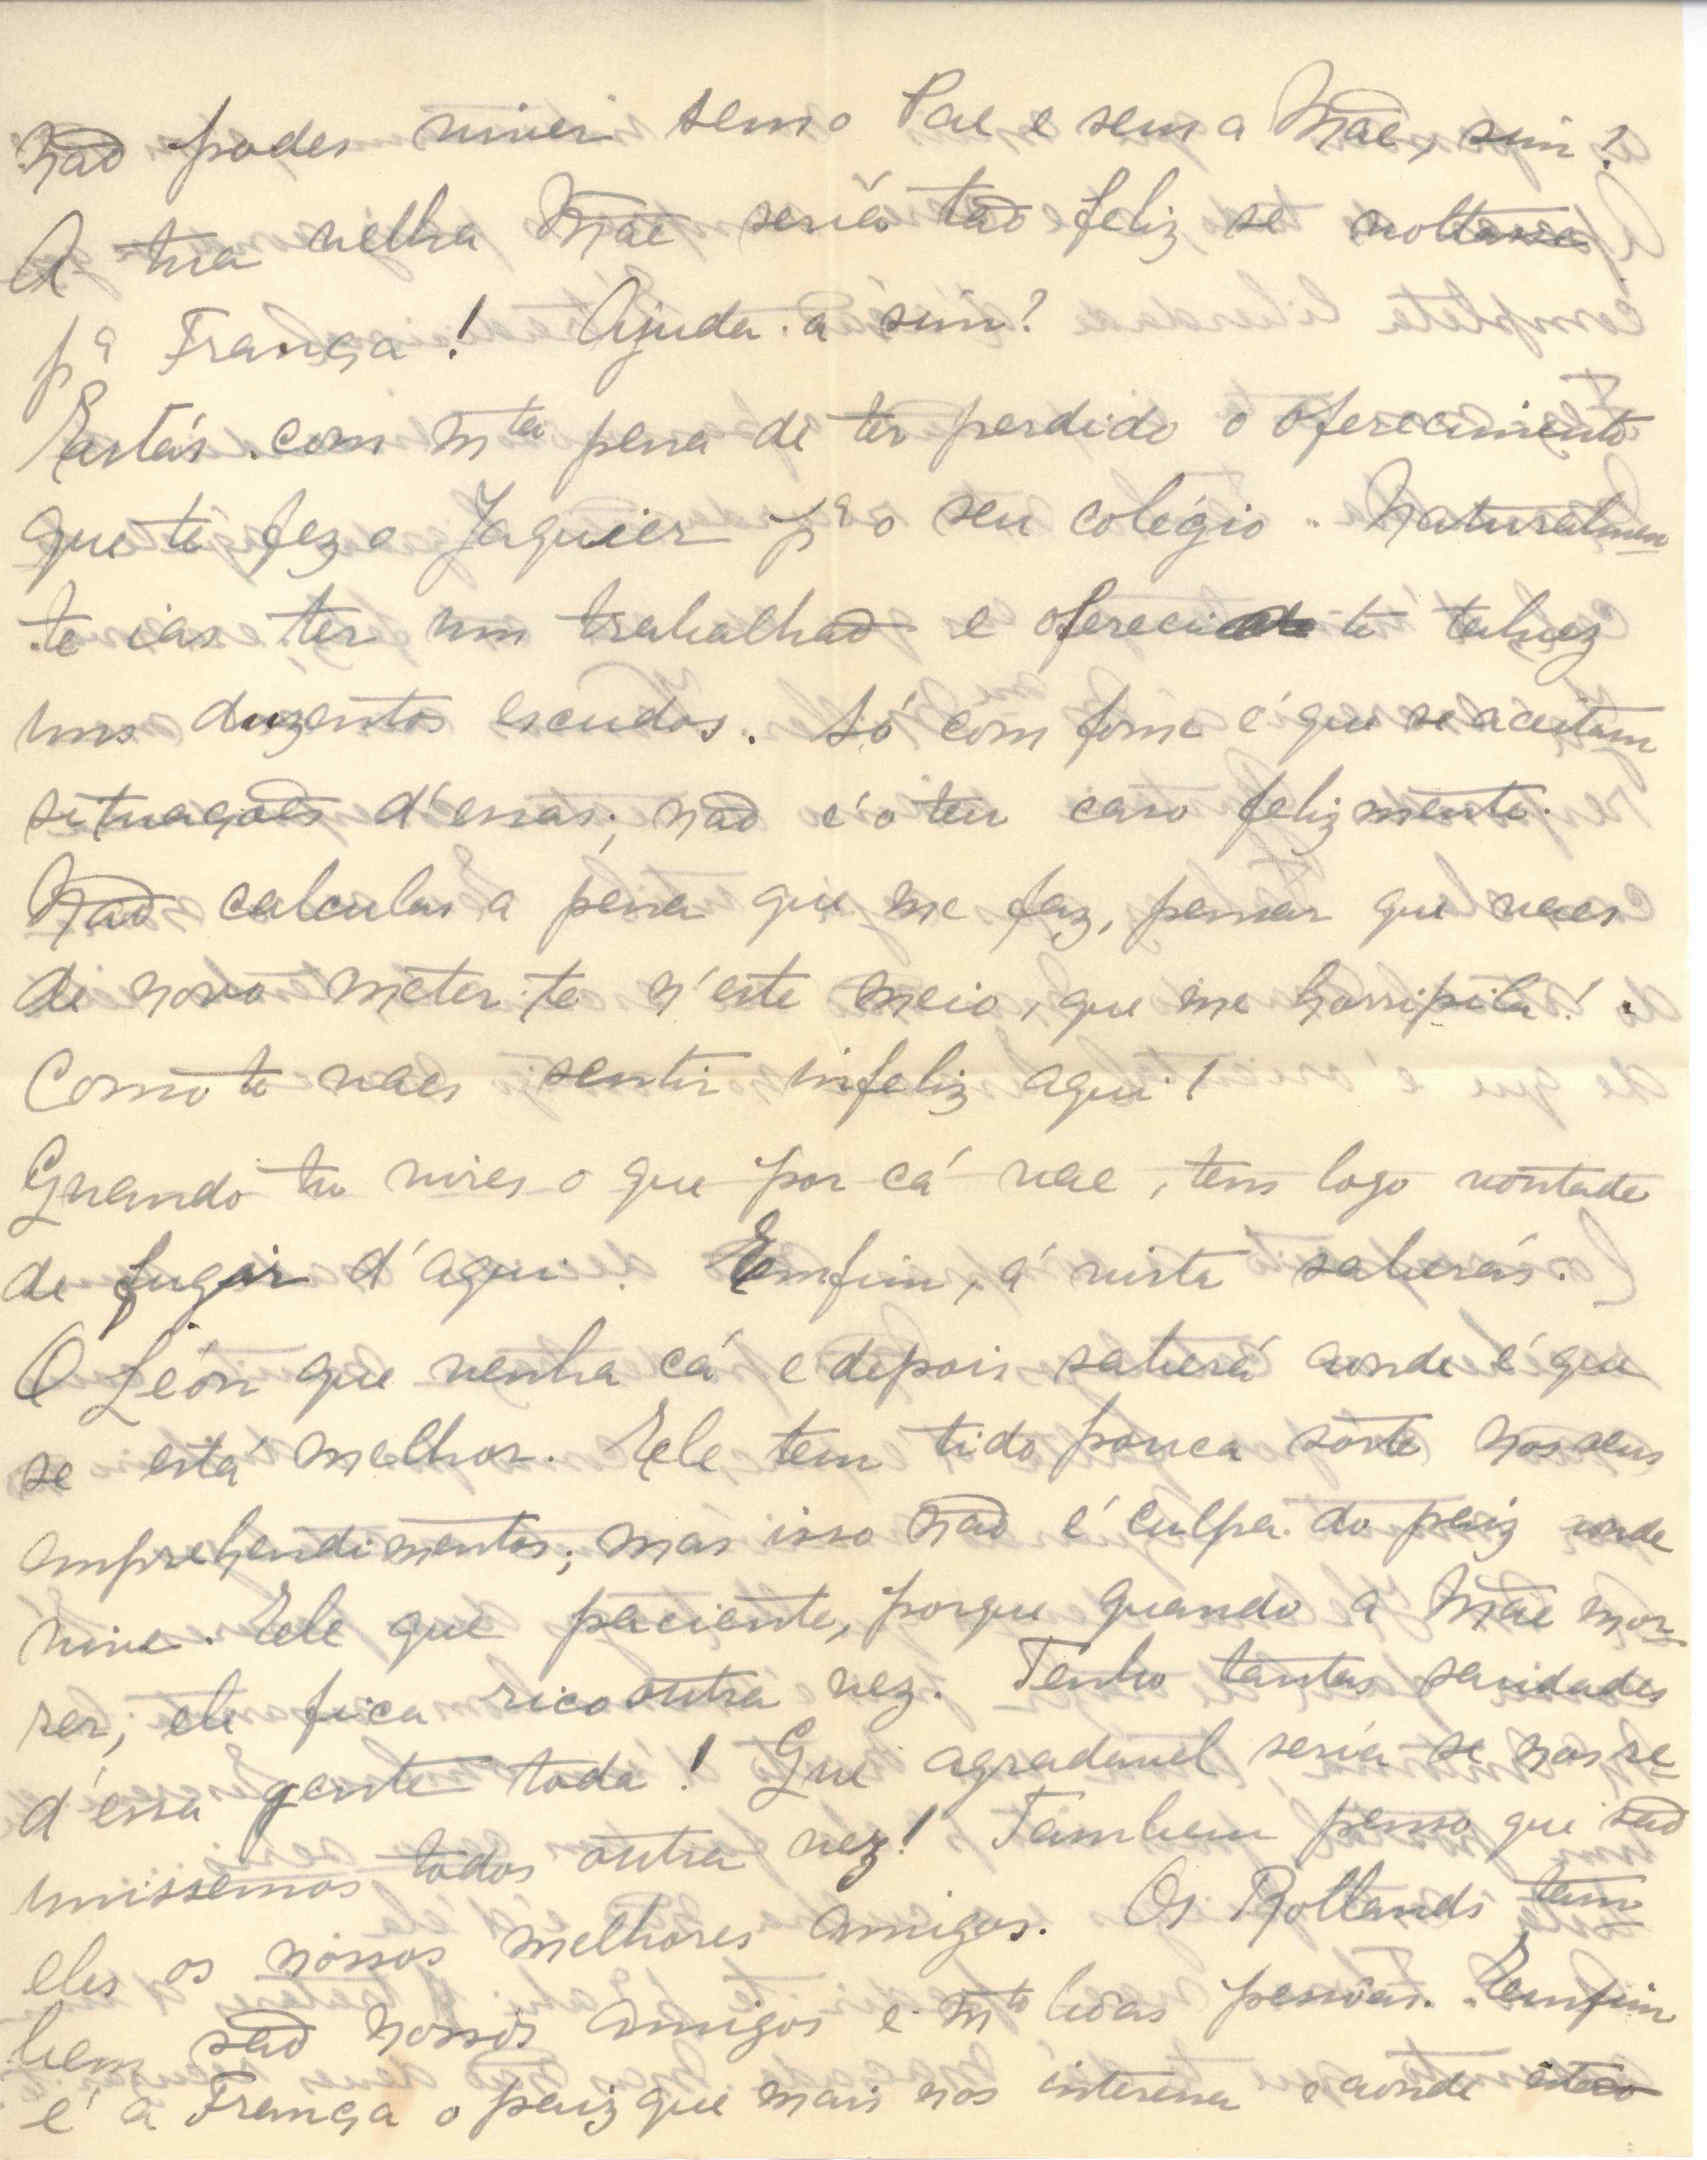 Não podes viver sem o Pae e sem a Mãe, sim?
A tua velha Mãe seria tão feliz se voltasse
pª França! Ajuda-a sim?
Estás com mta pena de ter perdido o oferecimento
que te fez o Jaquier pª o seu colégio. Naturalmen
te ias ter um trabalhão e oferecia-te talvez
uns duzentos escudos. Só com fome é que se aceitam
situações d'essas; não é o teu caso felizmente.
Não calculas a pena que me faz, pensar que vaes
de novo meter-te n'este meio, que me horripila!
Como te vaes sentir infeliz aqui!
Quando tu vires o que por cá vae, tens logo vontade
de fugir d'aqui. Emfim, á vista saberás.
O Léon que venha cá e depois saberá aonde é que
se está melhor. Ele tem tido pouca sorte nos seus
emprehendimentos; mas isso não é culpa do paiz onde
vive. Ele que paciente, porque quando a Mãe mor
rer, ele fica rico outra vez. Tenho tantas saudades
d'essa gente toda! Que agradavel seria se nos re
unissemos todos outra vez! Tambem penso que são
eles os nossos melhores amigos. Os Rollands tam
bem são nossos amigos e mto bôas pessôas. Emfim
é a França o paiz que mais nos interessa e aonde